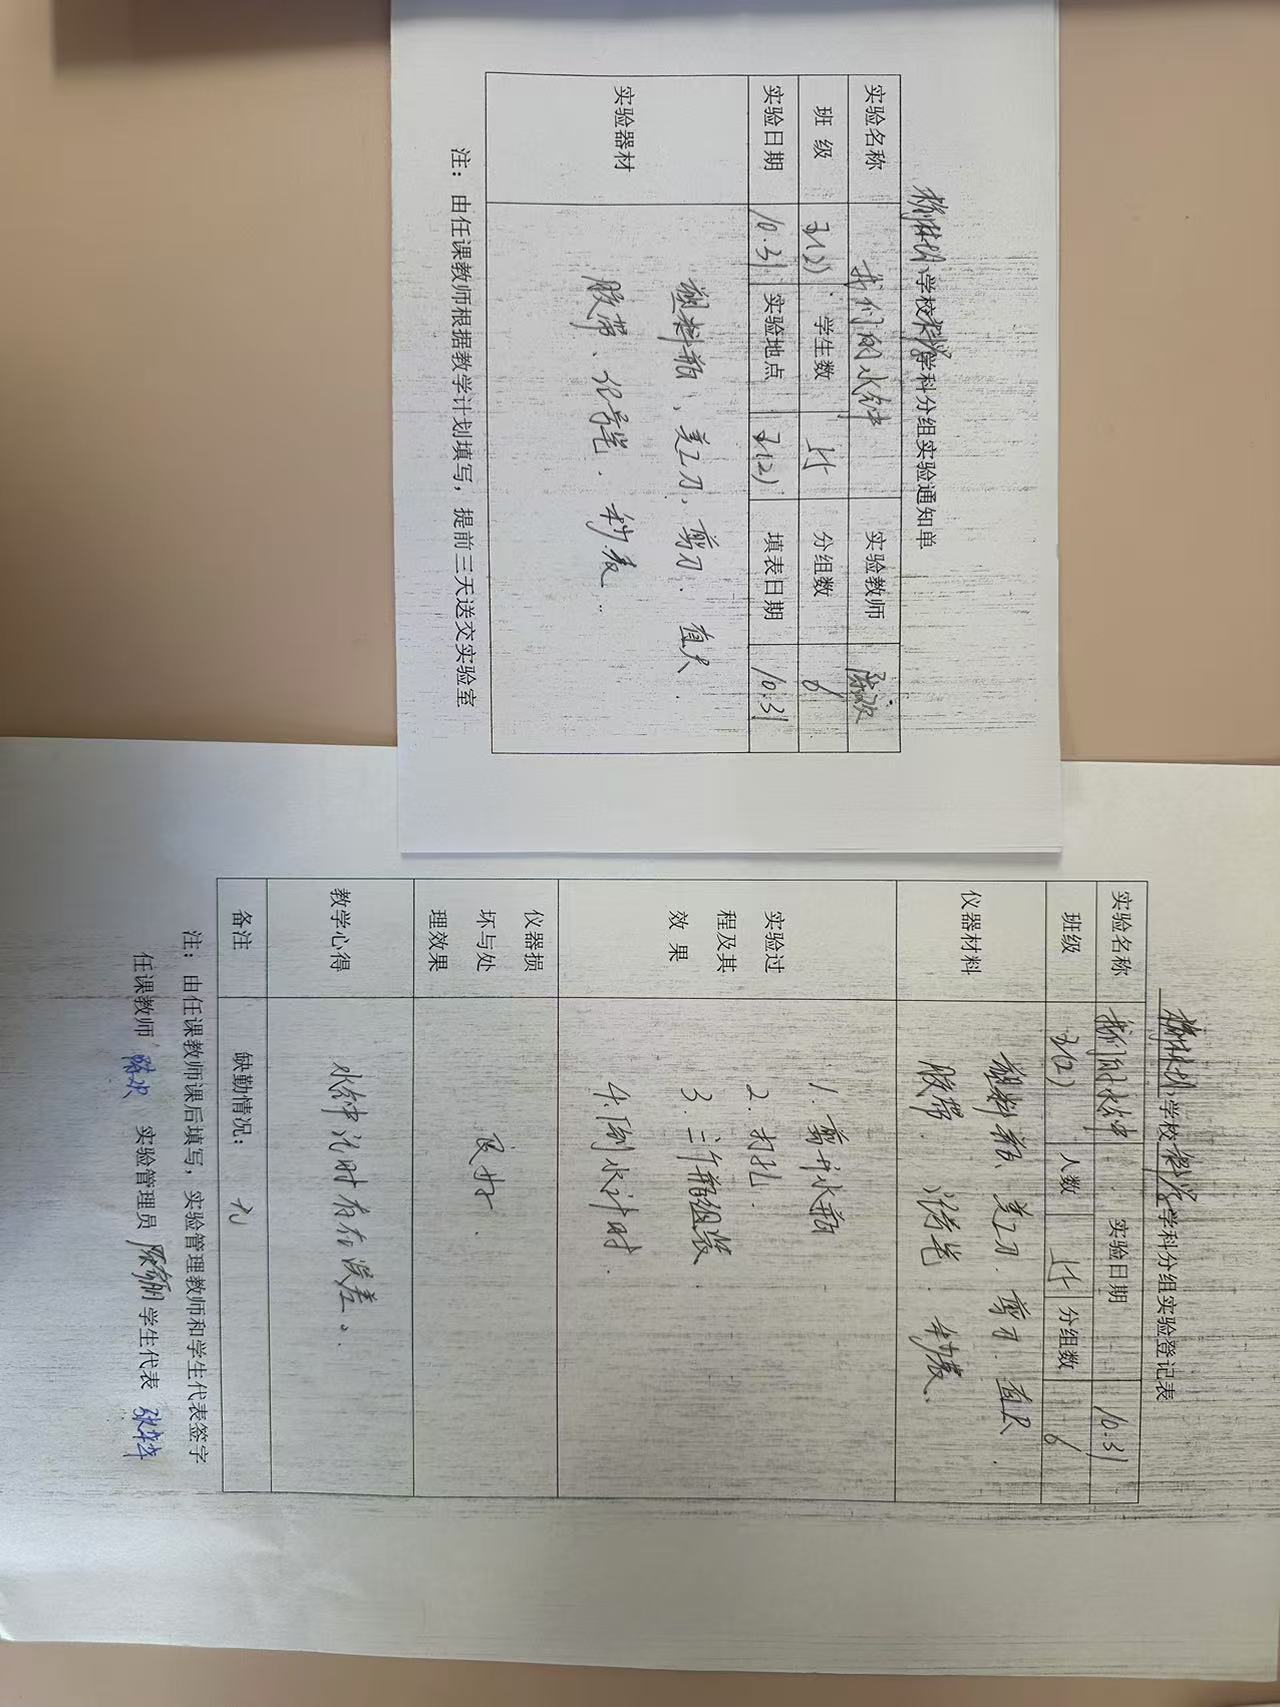 学校科学学科分组实验通知单
实验名称 我们的水钟 实验教师
班 级 五(2) 学生数 分组数 6
实验日期 10.31 实验地点 五(2) 填表日期 10.31
实验器材
塑料瓶、美工刀、剪刀、直尺、
胶带、记号笔、秒表
注：由任课教师根据教学计划填写，提前三天送交实验室
学校科学学科分组实验登记表
实验名称 我们的水钟 实验日期 10.31
班级 五(2) 人数 分组数 6
仪器材料
塑料瓶、美工刀、剪刀、直尺、
胶带、记号笔、秒表、
实验过
程及其
效 果
1. 剪开水瓶
2. 打孔.
3. 三个瓶组装
4. 倒水计时.
仪器损
坏与处
理效果
良好.
教学心得
水钟计时存在误差。
备注 缺勤情况：
注：由任课教师课后填写，实验管理教师和学生代表签字
任课教师 实验管理员 学生代表